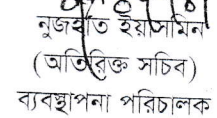 নুজহাত ইয়াসমিন
(অতিরিক্ত সচিব)
ব্যবস্থাপনা পরিচালক